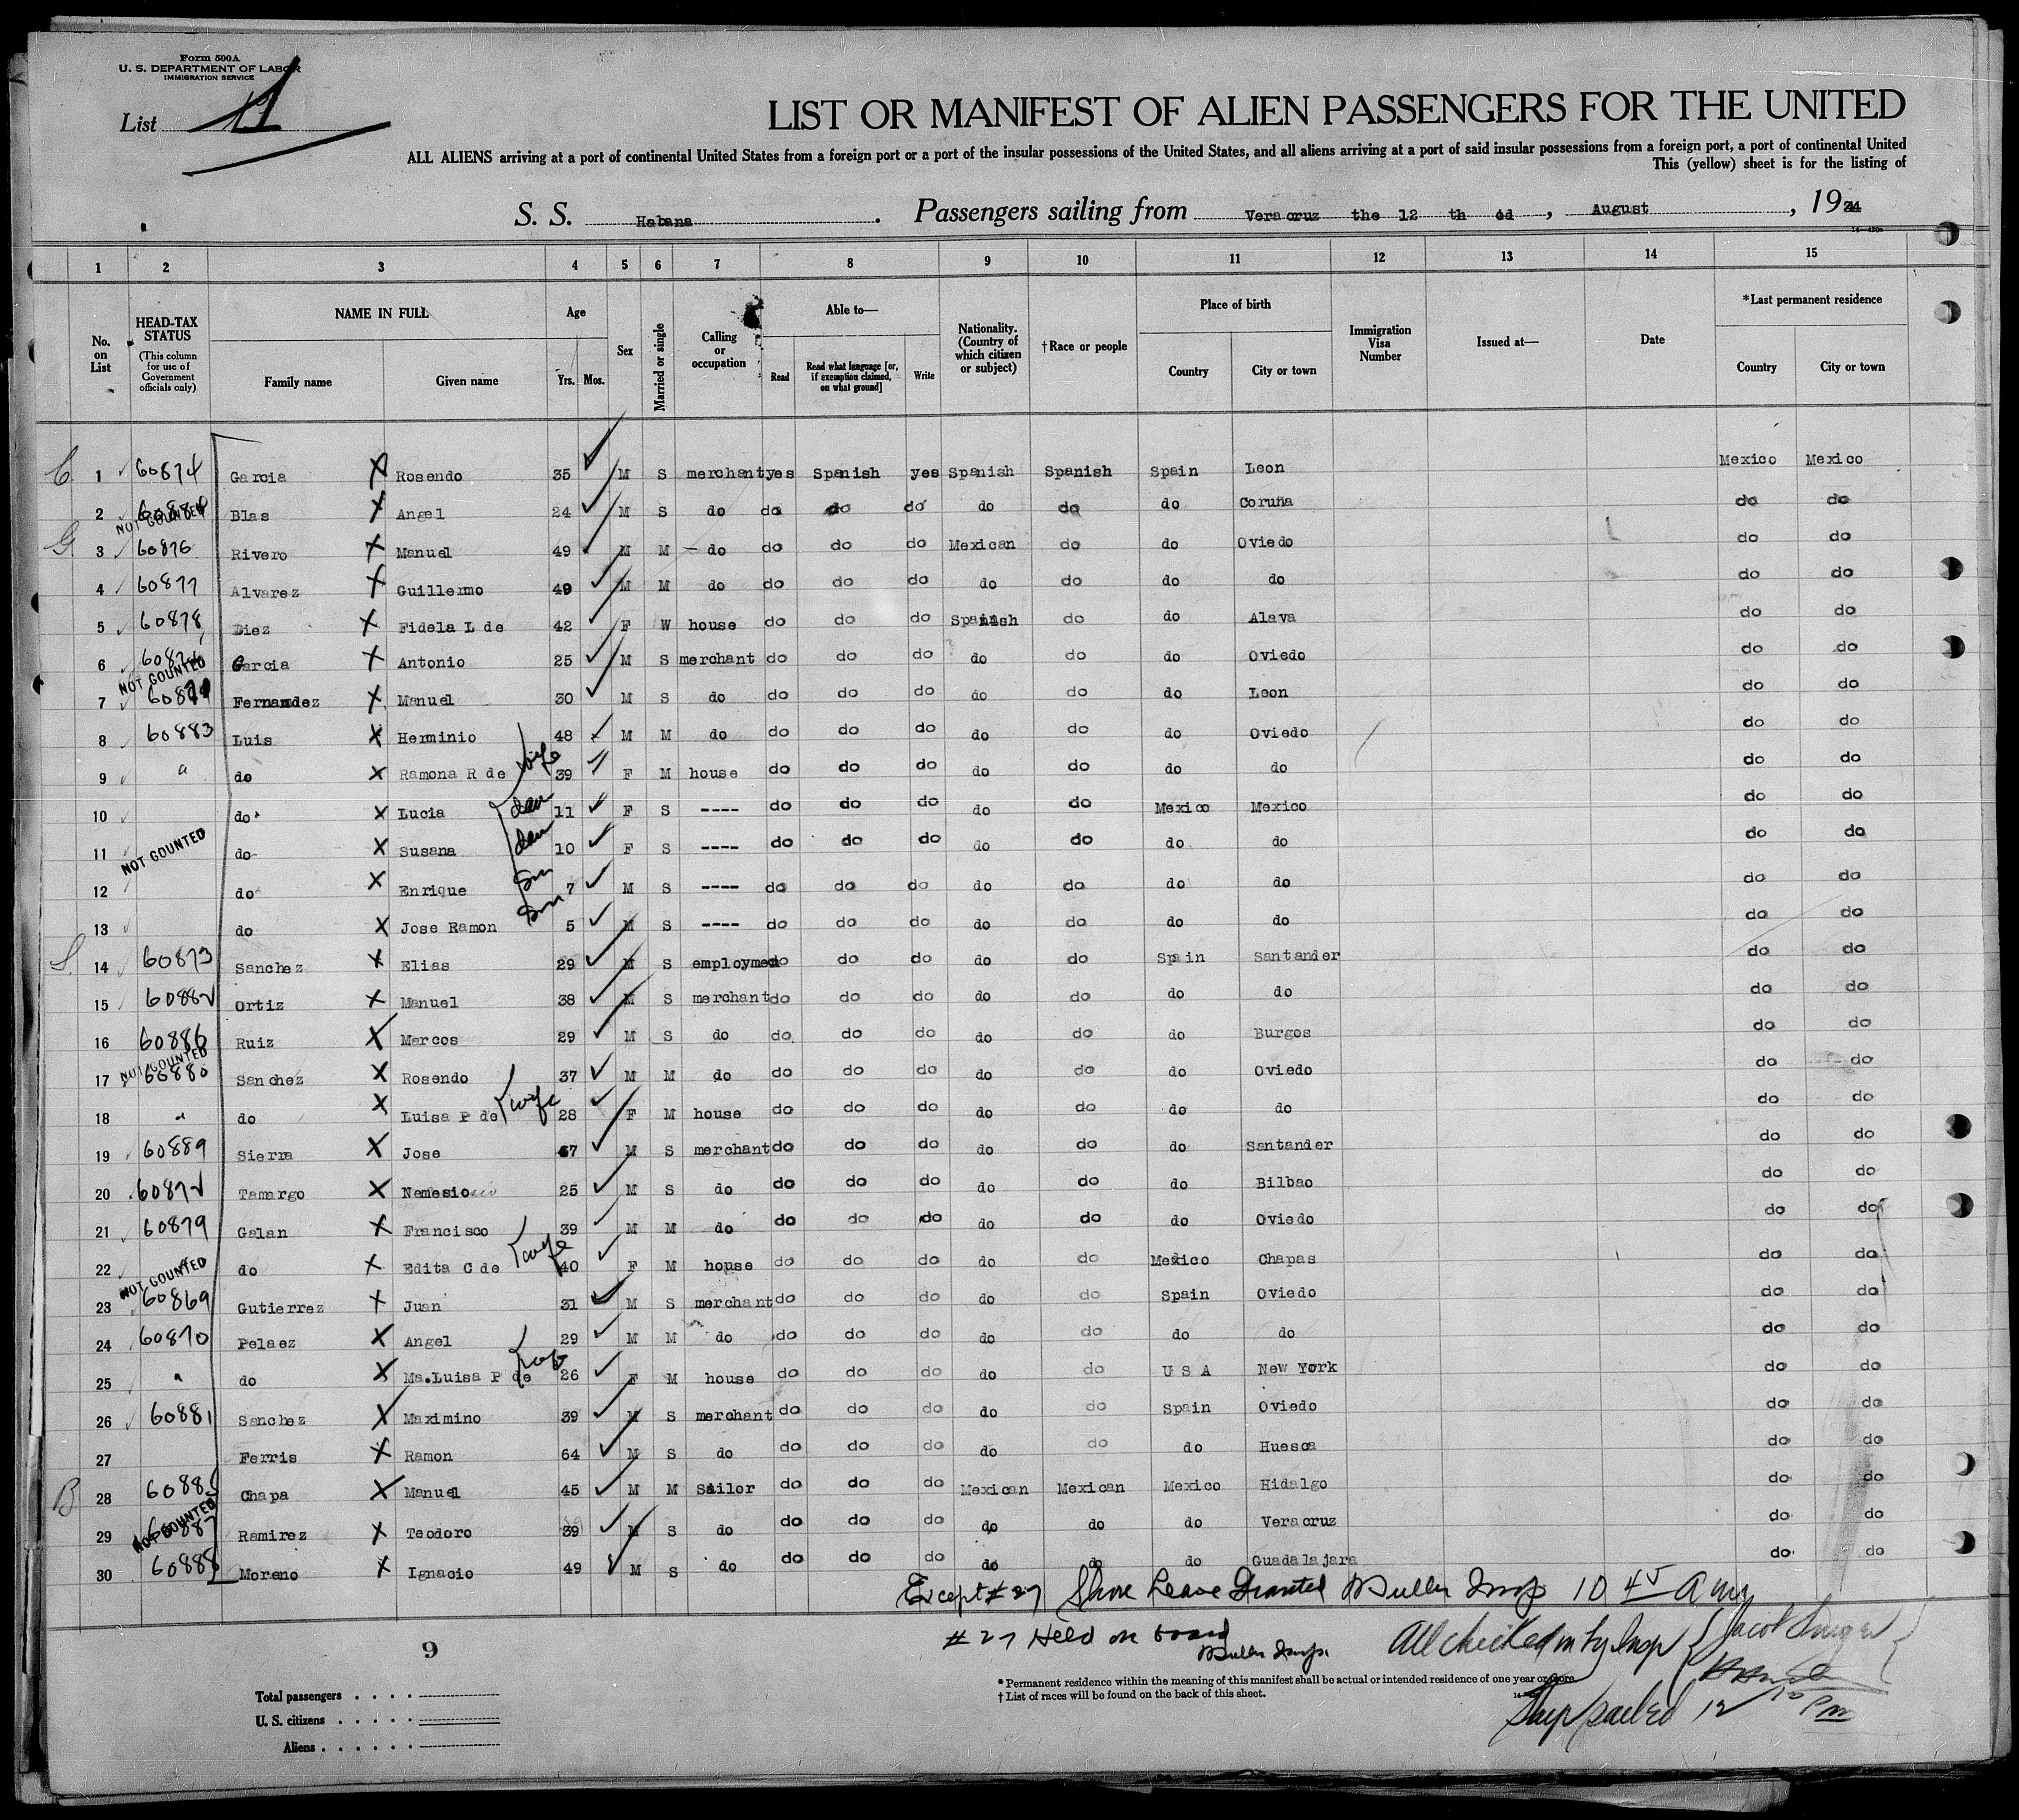 Form 500A
U. S. DEPARTMENT OF LABOR
IMMIGRATION SERVICE
List
LIST OR MANIFEST OF ALIEN PASSENGERS FOR THE UNITED
ALL ALIENS arriving at a port of continental United States from a foreign port or a port of the insular possessions of the United States, and all aliens arriving at a port of said insular possessions from a foreign port, a port of continental United
This (yellow) sheet is for the listing of
S. S. Habana. Passengers sailing from Veracruz the 12 th od, August, 1934
1 2 3 4 5 6 7 8 9 10 11 12 13 14 15
No. on List
HEAD-TAX STATUS (This column for use of Government officials only)
NAME IN FULL
Family name Given name
Age
Yrs. Mos.
Sex
Married or single
Calling or occupation
Able to—
Read
Read what language [or, if exemption claimed, on what ground]
Write
Nationality. (Country of which citizen or subject)
†Race or people
Place of birth
Country City or town
Immigration Visa Number
Issued at—
Date
*Last permanent residence
Country City or town
C. 1 60874 Garcia X Rosendo 35 M S merchant yes Spanish yes Spanish Spanish Spain Leon Mexico Mexico
2 NOT COUNTED Blas X Angel 24 M S do do do do do do do Coruña do do
G 3 60876 Rivero X Manuel 49 M M do do do do Mexican do do Oviedo do do
4 60877 Alvarez X Guillermo 49 M M do do do do do do do do do do
5 60878 Diez X Fidela L de 42 F W house do do do Spanish do do Alava do do
6 Garcia X Antonio 25 M S merchant do do do do do do Oviedo do do
NOT COUNTED
7 Fernandez X Manuel 30 M S do do do do do do do Leon do do
8 60883 Luis X Herminio 48 M M do do do do do do do Oviedo do do
9 " do X Ramona R de wife 39 F M house do do do do do do do do do
10 do X Lucia dau 11 F S ---- do do do do do Mexico Mexico do do
11 NOT COUNTED do X Susana dau 10 F S ---- do do do do do do do do do
12 do X Enrique Son 7 M S ---- do do do do do do do do do
13 do X Jose Ramon Son 5 M S ---- do do do do do do do do do
S. 14 60873 Sanchez X Elias 29 M S employmen do do do do do Spain Santander do do
15 60882 Ortiz X Manuel 38 M S merchant do do do do do do do do do
16 60886 Ruiz X Marcos 29 M S do do do do do do do Burgos do do
NOT COUNTED
17 60880 Sanchez X Rosendo 37 M M do do do do do do do Oviedo do do
18 " do X Luisa P de wife 28 F M house do do do do do do do do do
19 60889 Sierra X Jose 67 M S merchant do do do do do do Santander do do
20 60872 Tamargo X Nemesio 25 M S do do do do do do do Bilbao do do
21 60879 Galan X Francisco 39 M M do do do do do do do Oviedo do do
22 do X Edita C de wife 40 F M house do do do do do Mexico Chapas do do
NOT COUNTED
23 60869 Gutierrez X Juan 31 M S merchant do do do do do Spain Oviedo do do
24 60870 Pelaez X Angel 29 M M do do do do do do do do do do
25 " do X Ma.Luisa P de wife 26 F M house do do do do do U S A New York do do
26 60881 Sanchez X Maximino 39 M S merchant do do do do do Spain Oviedo do do
27 Ferris X Ramon 64 M S do do do do do do do Huesca do do
B 28 60885 Chapa X Manuel 45 M M Sailor do do do Mexican Mexican Mexico Hidalgo do do
29 NOT COUNTED 60887 Ramirez X Teodoro 39 M S do do do do do do do Veracruz do do
30 60888 Moreno X Ignacio 49 M S do do do do do do do Guadalajara do do
Except #27 Shore Leave Granted Muller Insp 10 45 am
#27 Held on board
Muller Insp.
All checked in by Insp
Ship sailed 12 10 Pm
9
*Permanent residence within the meaning of this manifest shall be actual or intended residence of one year or more.
† List of races will be found on the back of this sheet.
Total passengers . . . .
U. S. citizens . . . . .
Aliens . . . . . .